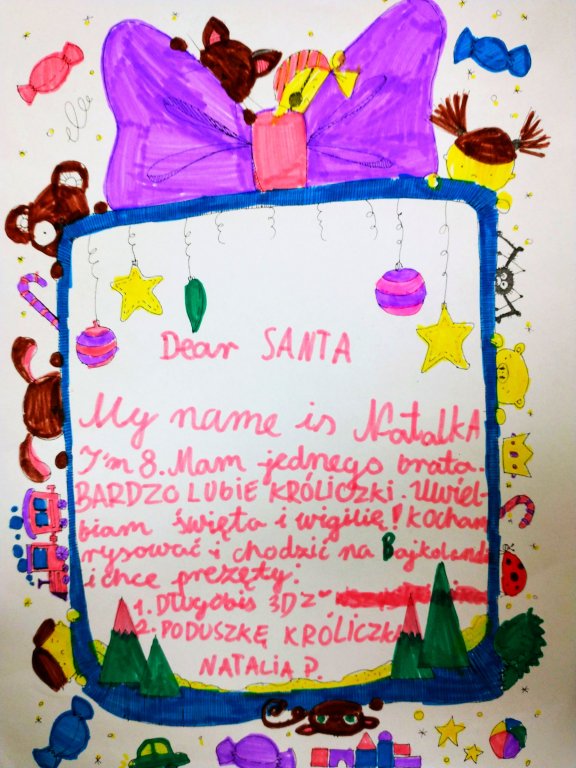 Dear SANTA
My name is NatalKA
I'm 8. Mam jednego brata.
BARDZO LUBIE KRÓLICZKI. Uwiel-
biam święta i wigilię! Kocham
rysować i chodzić na Bajkoland
i chce prezęty:
1. Długobis 3D z
2. PODUSZKĘ KRÓLICZKI
NATALIA P.